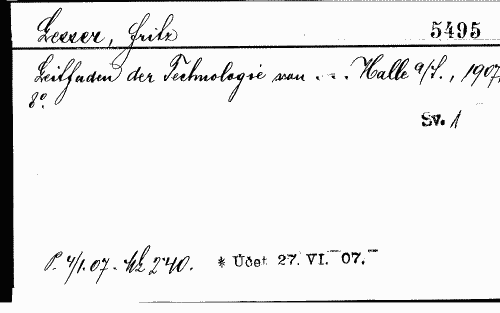 Lesser, Fritz 5495
Leitfaden der Technologie von . . . Halle a/S., 1907,
8°.
Sv. 1
P. 4/1.07. Mk 2·40. * Účet 27. VI. 07.